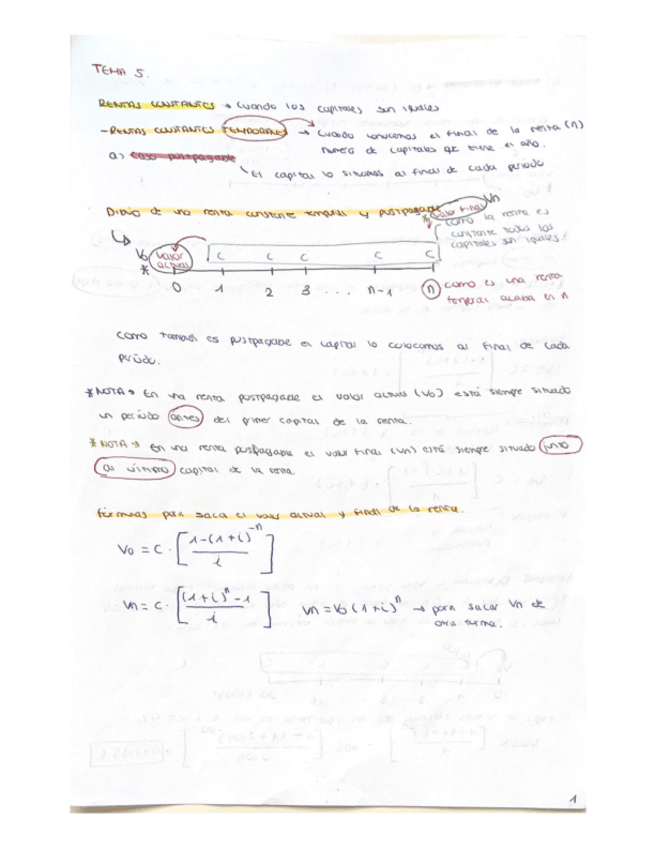 TEMA 5.
RENTAS CONSTANTES → Cuando los capitales son iguales
- RENTAS CONSTANTES TEMPORALES → Cuando conocemos el final de la renta (n)
numero de capitales que tiene el año.
a) Caso postpagable
El capital lo situamos al final de cada período
Dibujo de una renta constante temporal y postpagable
Valor final Vn
como la renta es
constante todos los
capitales son iguales.
Vo Valor actual
*
C C C C C
0 1 2 3 ... n-1 n
como es una renta
temporal acaba en n
como tambien es postpagable el capital lo colocamos al final de cada
período.
* NOTA → En una renta postpagable el valor actual (Vo) está siempre situado
un período antes del primer capital de la renta.
* NOTA → En una renta postpagable el valor final (Vn) está siempre situado junto
al último capital de la renta.
fórmulas para saca el valor actual y final de la renta.
Vo = C · [ 1-(1+i)^-n / i ]
Vn = C · [ (1+i)^n - 1 / i ]
Vn = Vo (1+i)^n → para sacar Vn de
otra forma.
1